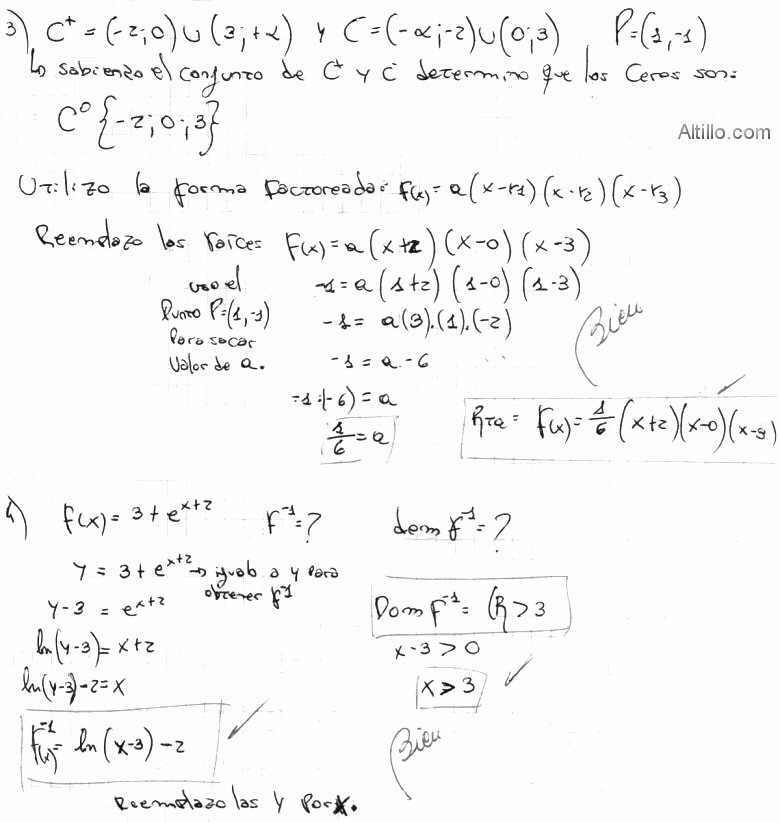 3) C⁺ = (-2;0) ∪ (3;+∝) y C⁻ = (-∝;-2) ∪ (0;3) P=(1,-1)
↳ sabiendo el conjunto de C⁺ y C⁻ determino que los Ceros son:
C⁰ {-2;0;3}
Altillo.com
Utilizo la forma factoreada: f(x)= a(x-r1)(x-r2)(x-r3)
Reemplazo las raíces f(x)=a(x+2)(x-0)(x-3)
uso el
Punto P=(1,-1)
Para sacar
Valor de a.
-1=a(1+2)(1-0)(1-3)
-1= a(3).(1).(-2)
-1=a.-6
-1:(-6)=a
1/6=a
Bien
Rta= f(x)=1/6(x+2)(x-0)(x-3)
4) f(x)=3+e^x+2 f⁻¹=? dom f⁻¹=?
y=3+e^x+2 → igualo a y para
obtener f⁻¹
y-3=e^x+2
ln(y-3)=x+2
ln(y-3)-2=x
f⁻¹(x)= ln(x-3)-2
Reemplazo las y por x.
Dom f⁻¹= ℝ>3
x-3>0
x>3
Bien